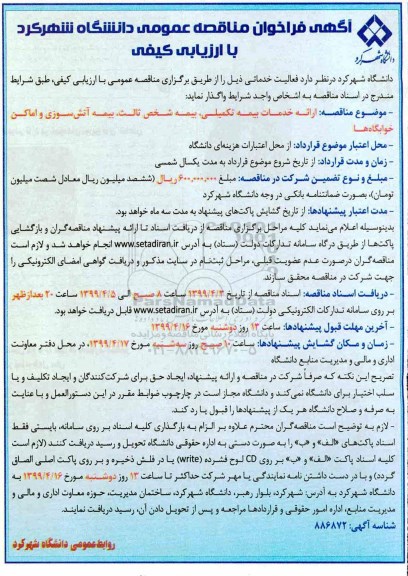 آگهی فراخوان مناقصه عمومی دانشگاه شهرکرد
با ارزیابی کیفی
دانشگاه شهرکرد
دانشگاه شهرکرد درنظر دارد فعالیت خدماتی ذیل را از طریق برگزاری مناقصه عمومی با ارزیابی کیفی، طبق شرایط
مندرج در اسناد مناقصه به اشخاص واجد شرایط واگذار نماید:
- موضوع مناقصه: ارائه خدمات بیمه تکمیلی، بیمه شخص ثالث، بیمه آتش‌سوزی و اماکن
خوابگاه‌ها
- محل اعتبار موضوع قرارداد: از محل اعتبارات هزینه‌ای دانشگاه
- زمان و مدت قرارداد: از تاریخ شروع موضوع قرارداد به مدت یکسال شمسی
- مبلغ و نوع تضمین شرکت در مناقصه: مبلغ ۶۰۰,۰۰۰,۰۰۰ ریال (ششصد میلیون ریال معادل شصت میلیون
تومان)، بصورت ضمانتنامه بانکی در وجه دانشگاه شهرکرد
- مدت اعتبار پیشنهادها: از تاریخ گشایش پاکت‌های پیشنهاد به مدت سه ماه خواهد بود.
بدینوسیله اعلام می‌نماید کلیه مراحل برگزاری مناقصه از دریافت اسناد تا ارائه پیشنهاد مناقصه‌گران و بازگشایی
پاکت‌ها از طریق درگاه سامانه تدارکات دولت (ستاد) به آدرس www.setadiran.ir انجام خواهد شد و لازم است
مناقصه‌گران درصورت عدم عضویت قبلی، مراحل ثبت‌نام در سایت مذکور و دریافت گواهی امضای الکترونیکی را
جهت شرکت در مناقصه محقق سازند.
- دریافت اسناد مناقصه: اسناد مناقصه از تاریخ ۱۳۹۹/۴/۳ ساعت ۸ صبح الی ۱۳۹۹/۴/۵ ساعت ۲۰ بعدازظهر
بر روی سامانه تدارکات الکترونیکی دولت (ستاد) به آدرس www.setadiran.ir قابل دریافت خواهد بود.
- آخرین مهلت قبول پیشنهادها: ساعت ۱۳ روز دوشنبه مورخ ۱۳۹۹/۴/۱۶
- زمان و مکان گشایش پیشنهادها: ساعت ۱۰ صبح روز سه‌شنبه مورخ ۱۳۹۹/۴/۱۷، در محل دفتر معاونت
اداری و مالی و مدیریت منابع دانشگاه
تصریح این نکته که صرفاً شرکت در مناقصه و ارائه پیشنهاد، ایجاد حق برای شرکت‌کنندگان و ایجاد تکلیف و یا
سلب اختیار برای دانشگاه نمی‌کند و دانشگاه مجاز است در چارچوب ضوابط مقرر در این دستورالعمل و با عنایت
به صرفه و صلاح دانشگاه هر یک از پیشنهادها را قبول یا رد کند.
- لازم به توضیح است مناقصه‌گران محترم علاوه بر الزام به بارگذاری کلیه اسناد بر روی سامانه، بایستی فقط
اسناد پاکت‌های «الف» و «ب» را به صورت دستی به اداره حقوقی دانشگاه تحویل و رسید دریافت کنند (لازم است
کلیه اسناد پاکت «الف» و «ب» بر روی CD لوح فشرده (write) یا در فلش ذخیره و بر روی پاکت اصلی الصاق
گردد) و با در دست داشتن نامه نمایندگی یا مهر شرکت حداکثر تا ساعت ۱۳ روز دوشنبه مورخ ۱۳۹۹/۴/۱۶ به
دانشگاه شهرکرد به آدرس: شهرکرد، بلوار رهبر، دانشگاه شهرکرد، ساختمان مدیریت، حوزه معاونت اداری و مالی و
مدیریت منابع، اداره امور حقوقی و قراردادها مراجعه و پس از تحویل دادن آن، رسید دریافت نمایند.
شناسه آگهی: ۸۸۶۸۷۲
روابط عمومی دانشگاه شهرکرد